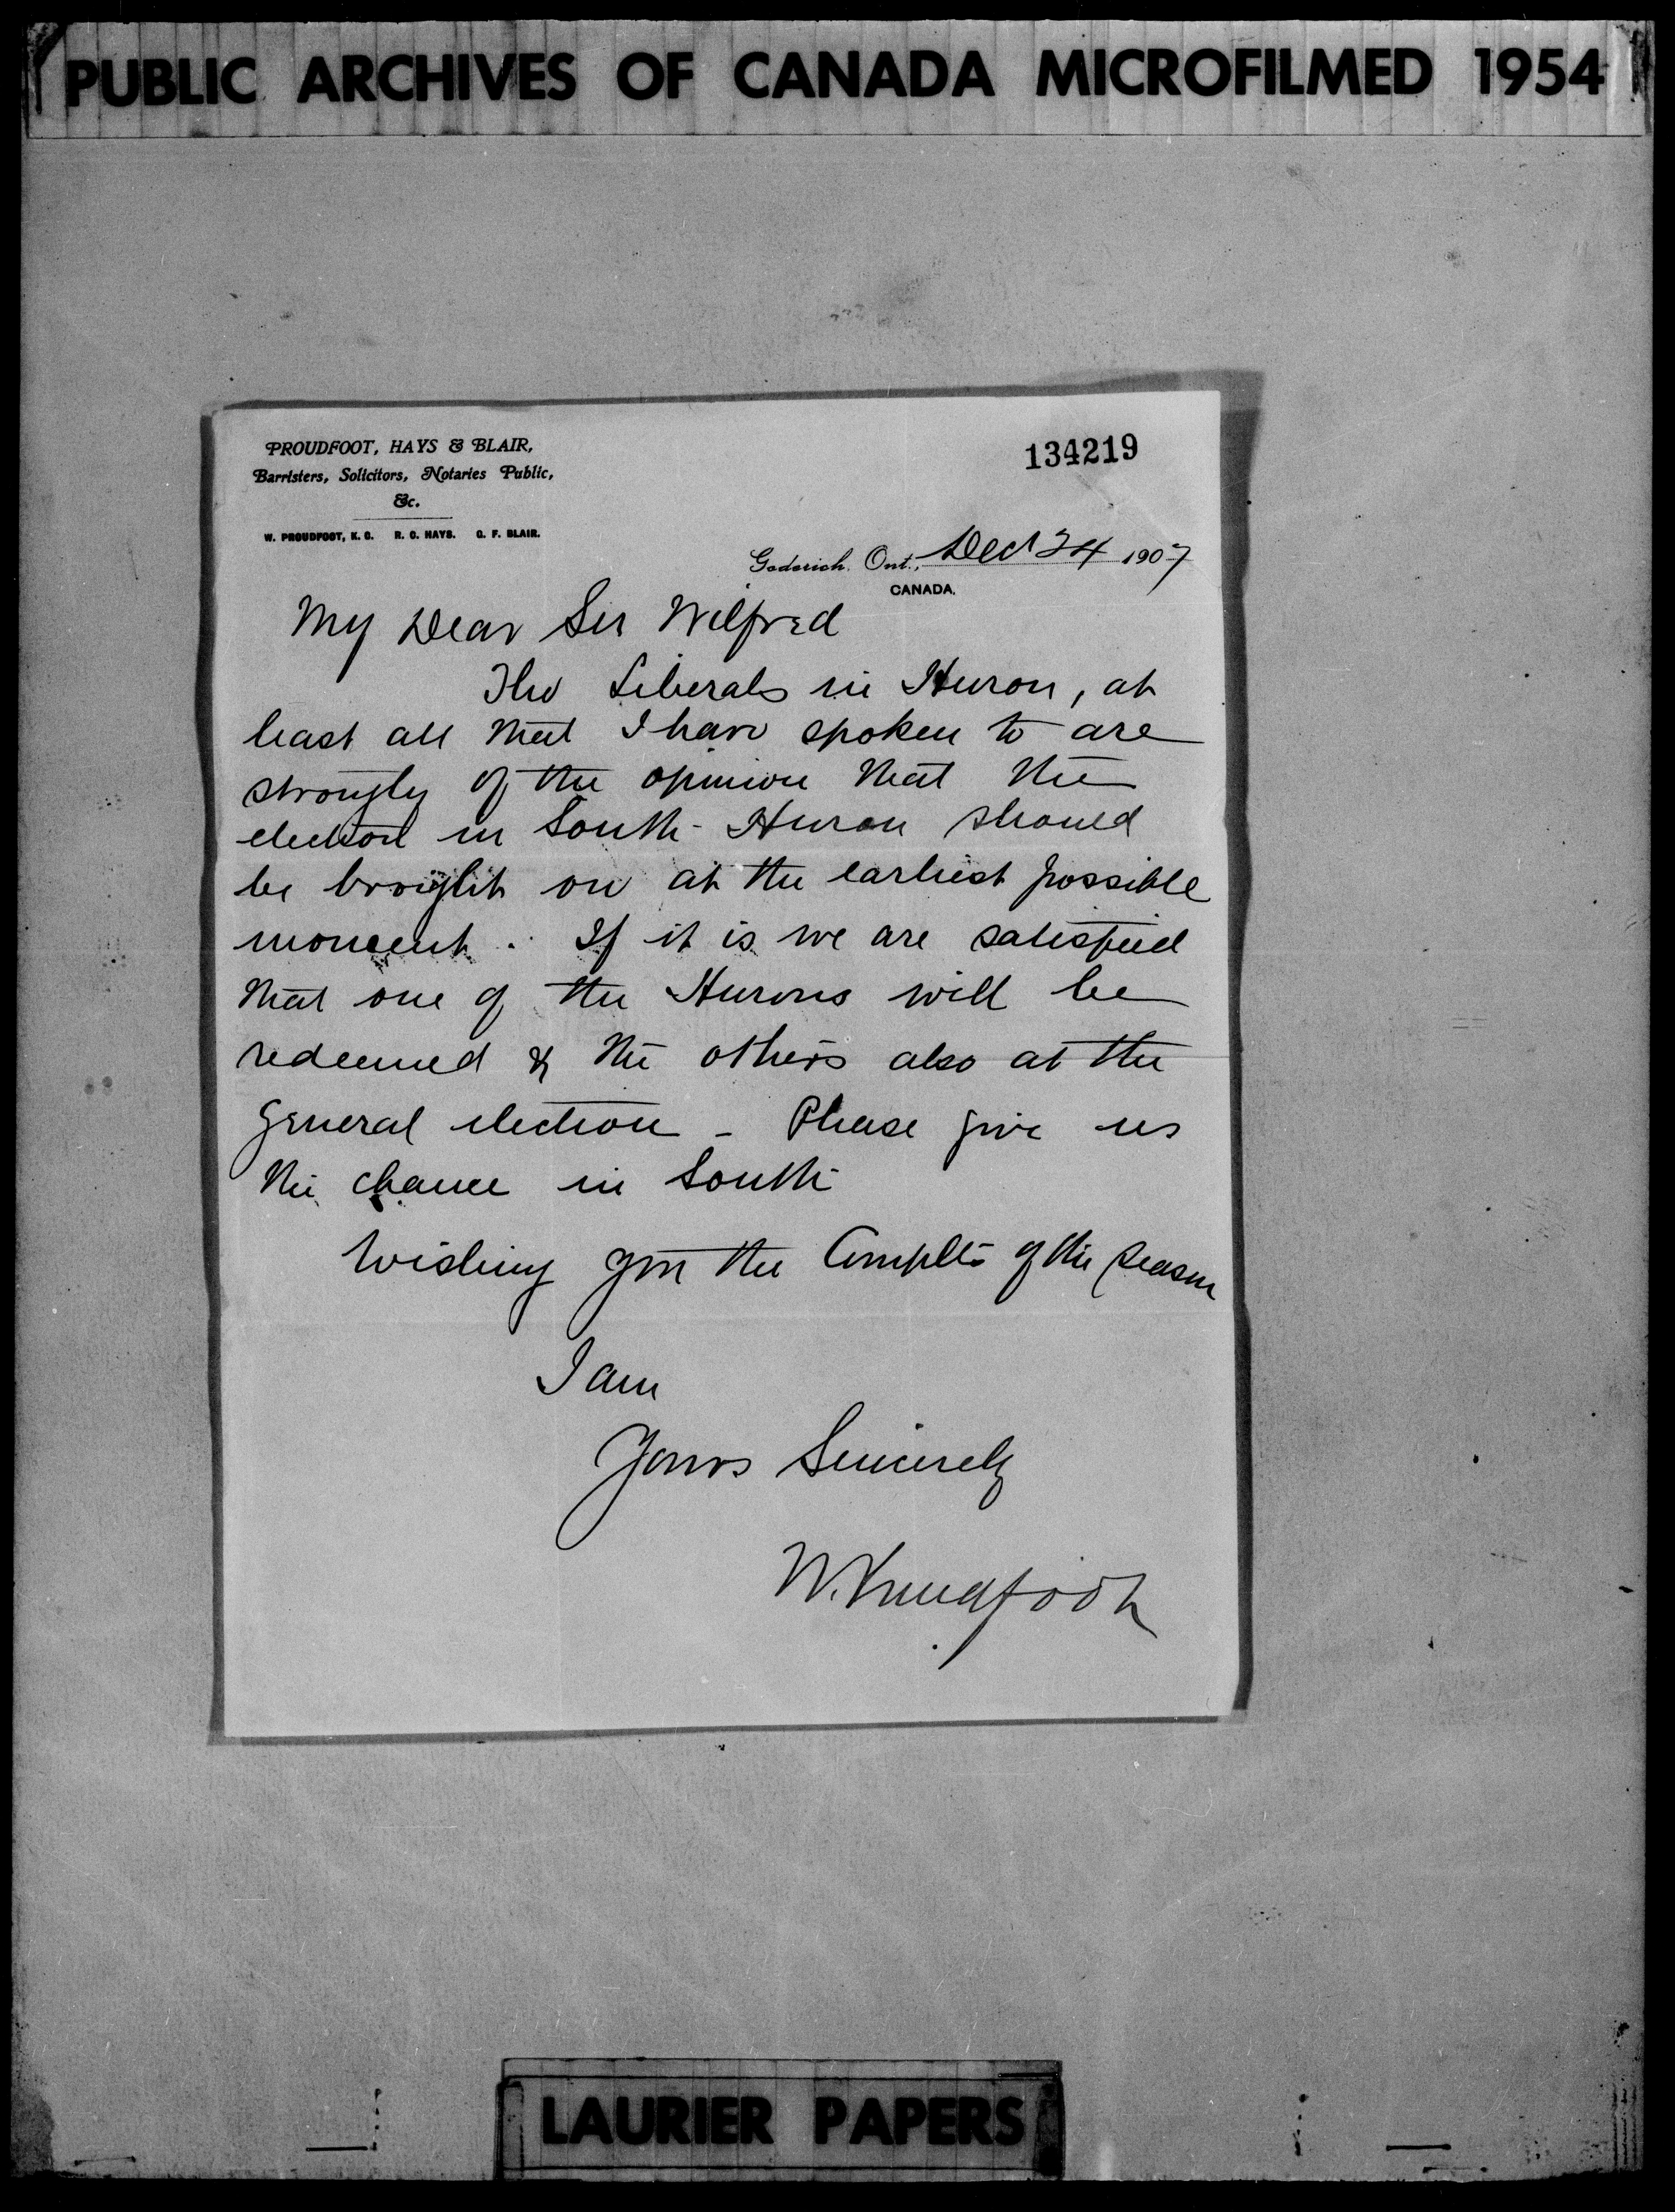 PUBLIC ARCHIVES OF CANADA MICROFILMED 1954
PROUDFOOT, HAYS & BLAIR,
Barristers, Solicitors, Notaries Public,
&c.
W. PROUDFOOT, K. C. R. C. HAYS. G. F. BLAIR.
134219
Goderich. Ont., Dec 24 1907
CANADA.
My Dear Sir Wilfred
The Liberals in Huron, at
least all that I have spoken to are
strongly of the opinion that the
election in South-Huron should
be brought on at the earliest possible
moment. If it is we are satisfied
that one of the Hurons will be
redeemed & the others also at the
General election - Please give us
the chance in South
Wishing you the Complts of the Season
I am
Yours Sincerely
W. Proudfoot
LAURIER PAPERS